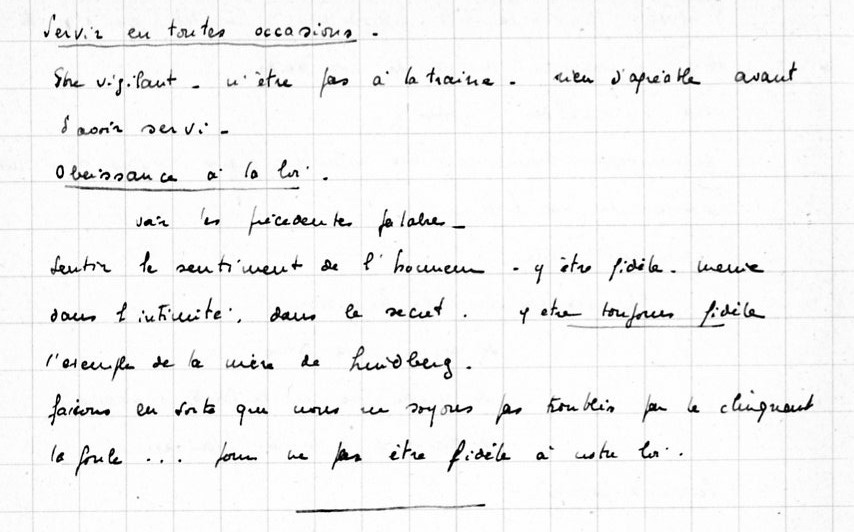 Servir en toutes occasions.
Etre vigilant - n'être pas à la traine. rien d'agréable avant
d'avoir servi -
Obeissance à la loi.
voir les précédentes palabres -
Sentir le sentiment de l'honneur - y être fidèle. meme
dans l'intimité, dans le secret. y etre toujours fidèle
l'exemple de la mère de Lindberg.
faisons en sorte que nous ne soyons pas troublés par le clinquant
la foule ... pour ne pas être fidèle à notre loi.